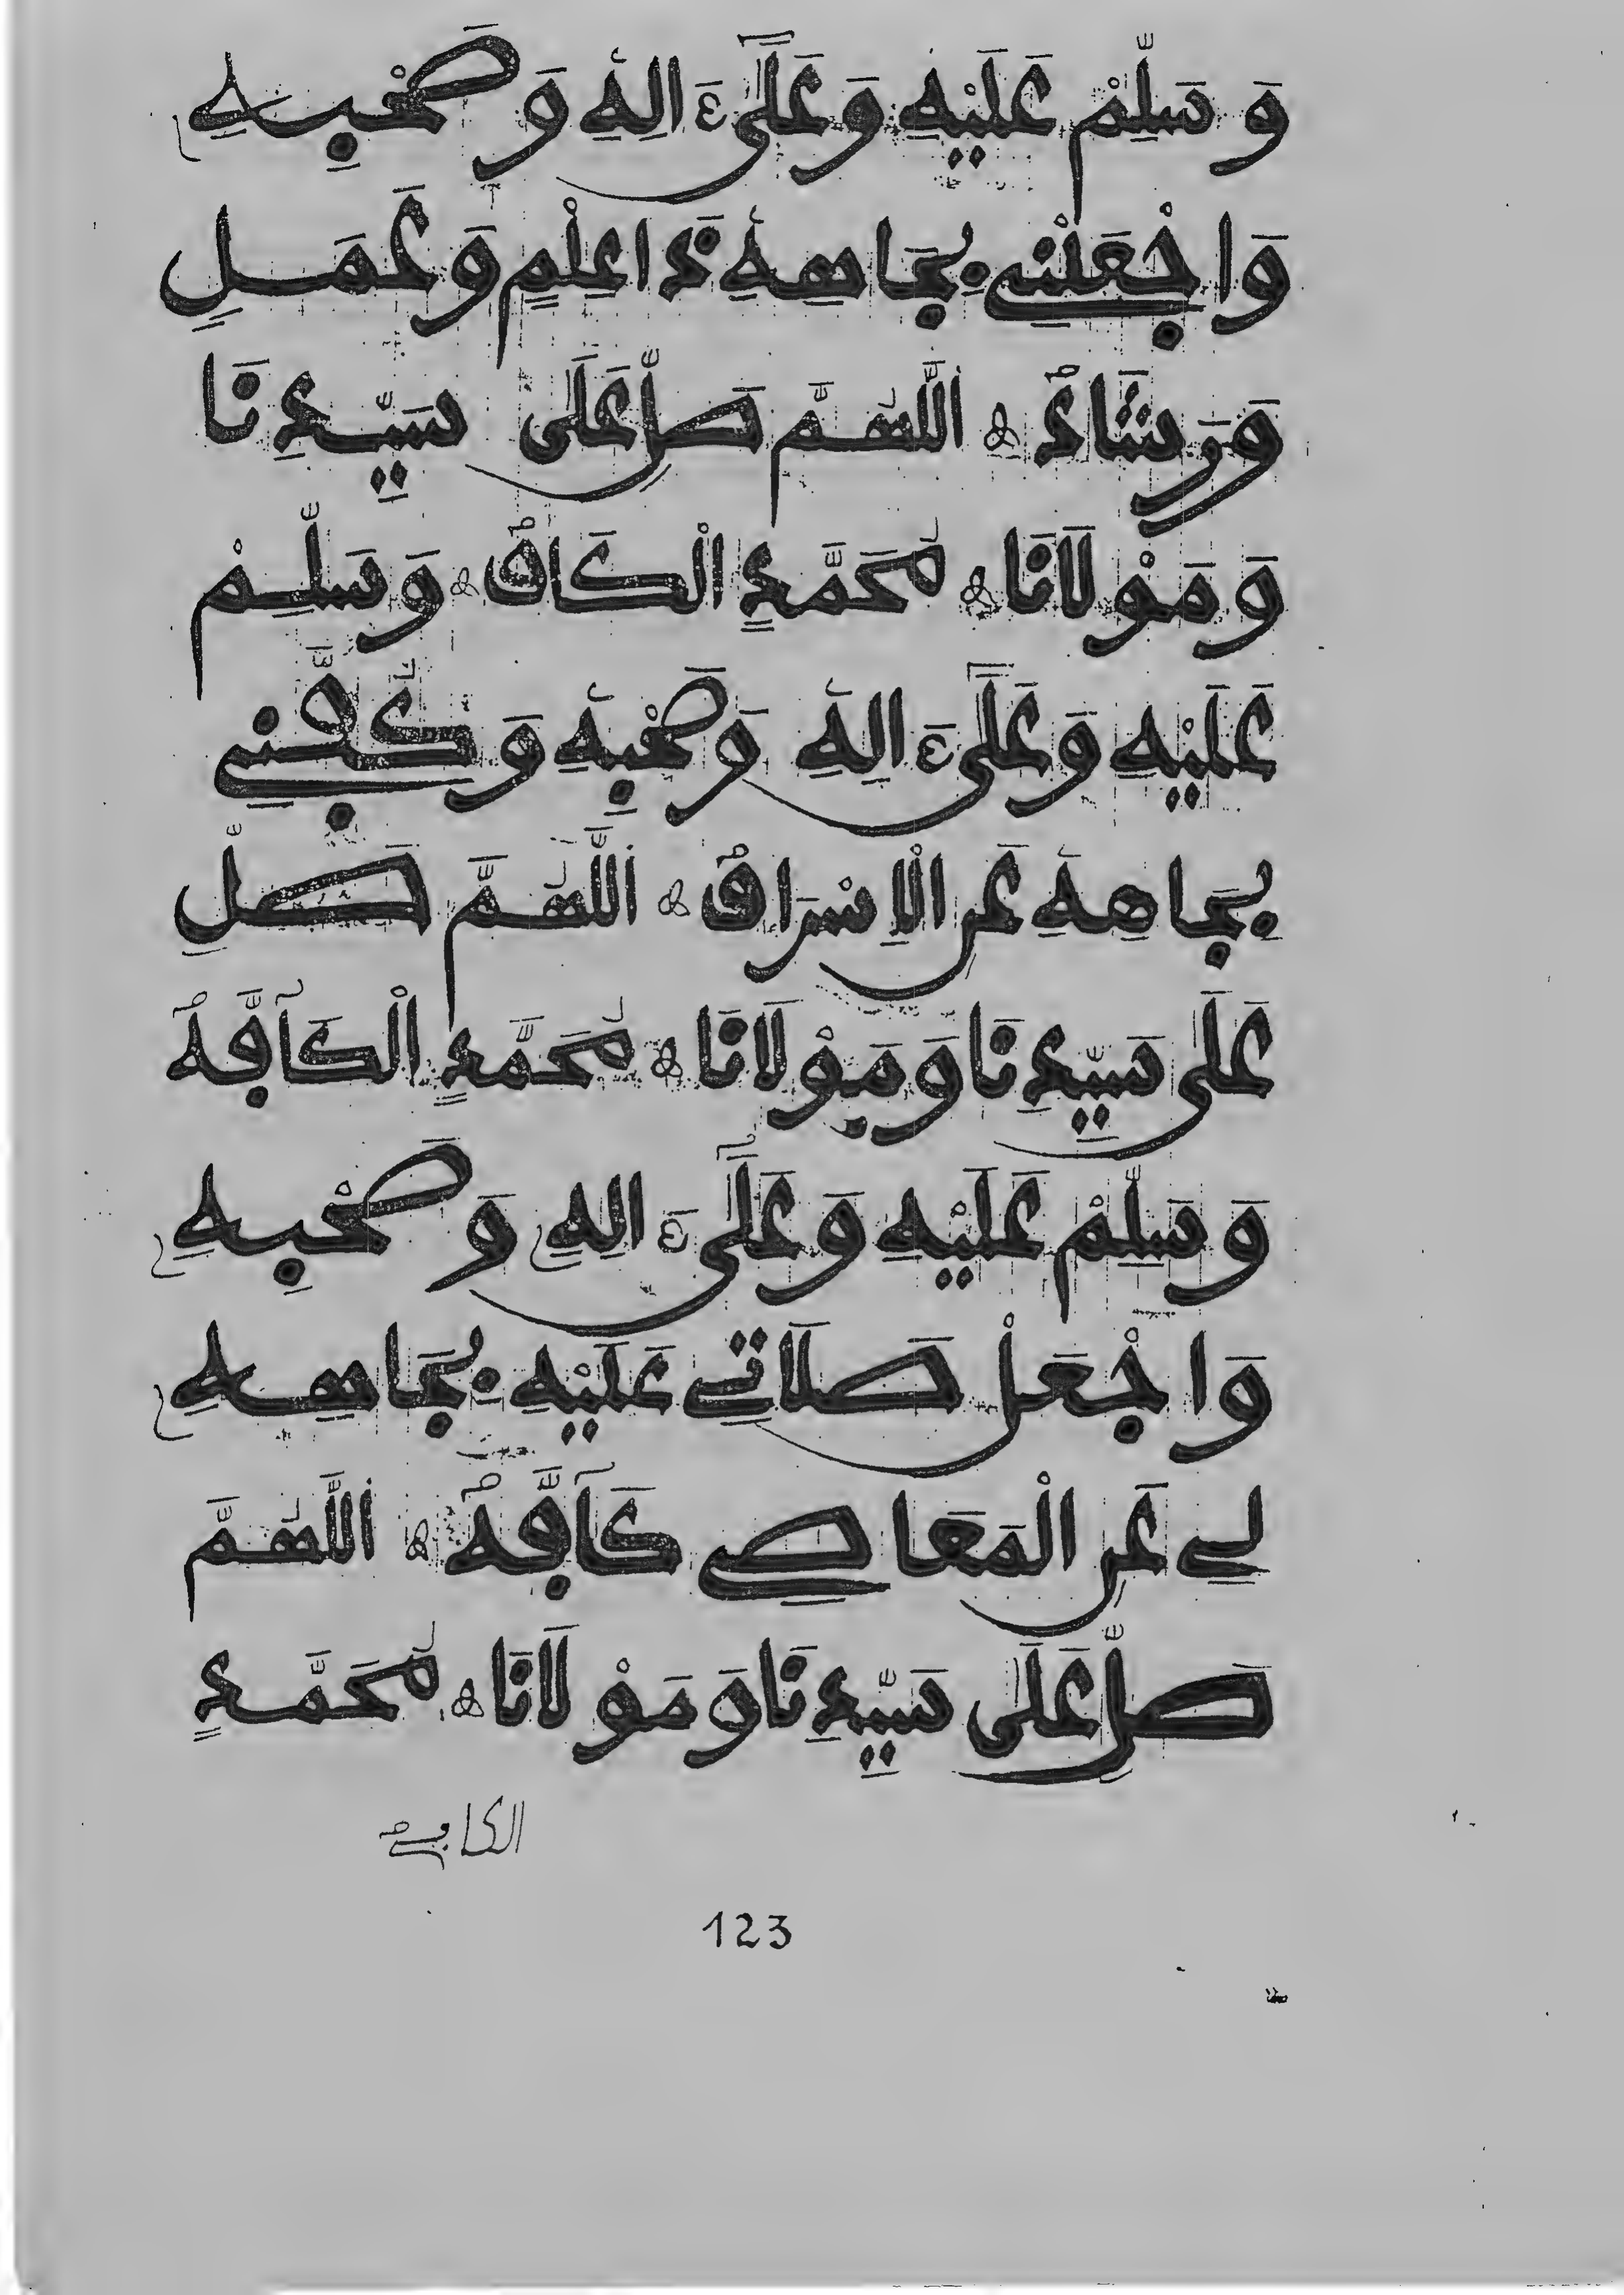 وَسَلِّمْ عَلَيْهِ وَعَلَىٰٓ ءَالِهِ وَصَحْبِهِ
وَاجْعَلْنِي بِجَاهِهِ ذَا عِلْمٍ وَعَمَلِ
وَرَشَادْ اللَّهُمَّ صَلِّ عَلَى سَيِّدِنَا
وَمَوْلَانَا مُحَمَّدٍ الْكَافْ وَسَلِّمْ
عَلَيْهِ وَعَلَىٰٓ ءَالِهِ وَصَحْبِهِ وَكُفَّنِي
بِجَاهِهِ عَنِ الِاسْرَافْ اللَّهُمَّ صَلِّ
عَلَى سَيِّدِنَا وَمَوْلَانَا مُحَمَّدٍ الْكَآفَّهْ
وَسَلِّمْ عَلَيْهِ وَعَلَىٰٓ ءَالِهِ وَصَحْبِهِ
وَاجْعَلْ صَلَاتِي عَلَيْهِ بِجَاهِهِ
لِي عَنِ الْمَعَاصِي كَآفَّهْ اللَّهُمَّ
صَلِّ عَلَى سَيِّدِنَا وَمَوْلَانَا مُحَمَّدٍ
الكافي
123